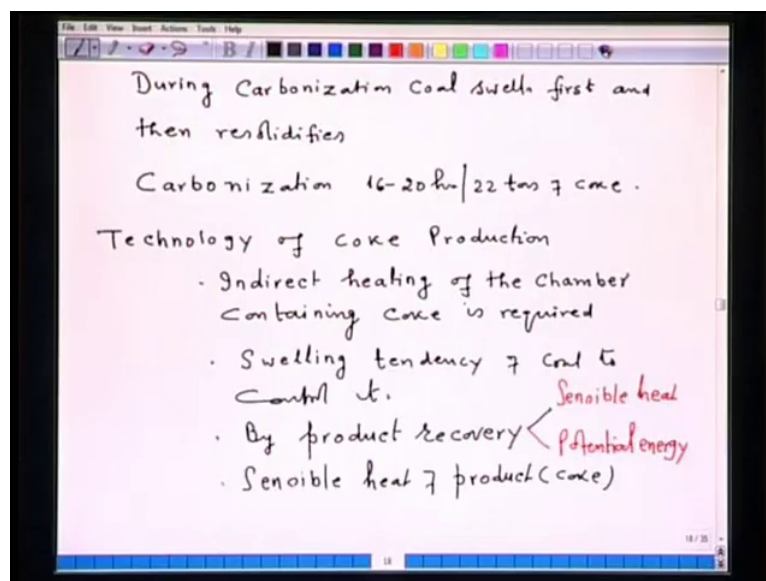 File Edit View Insert Actions Tools Help
B I
During Carbonization Coal swells first and
then resolidifies
Carbonization 16-20 hr/22 tons of coke.
Technology of coke Production
· Indirect heating of the Chamber
containing coke is required
· Swelling tendency of coal to
Control it.
· By product recovery < Sensible heat
Potential energy
· Sensible heat of product (coke)
18/35
18